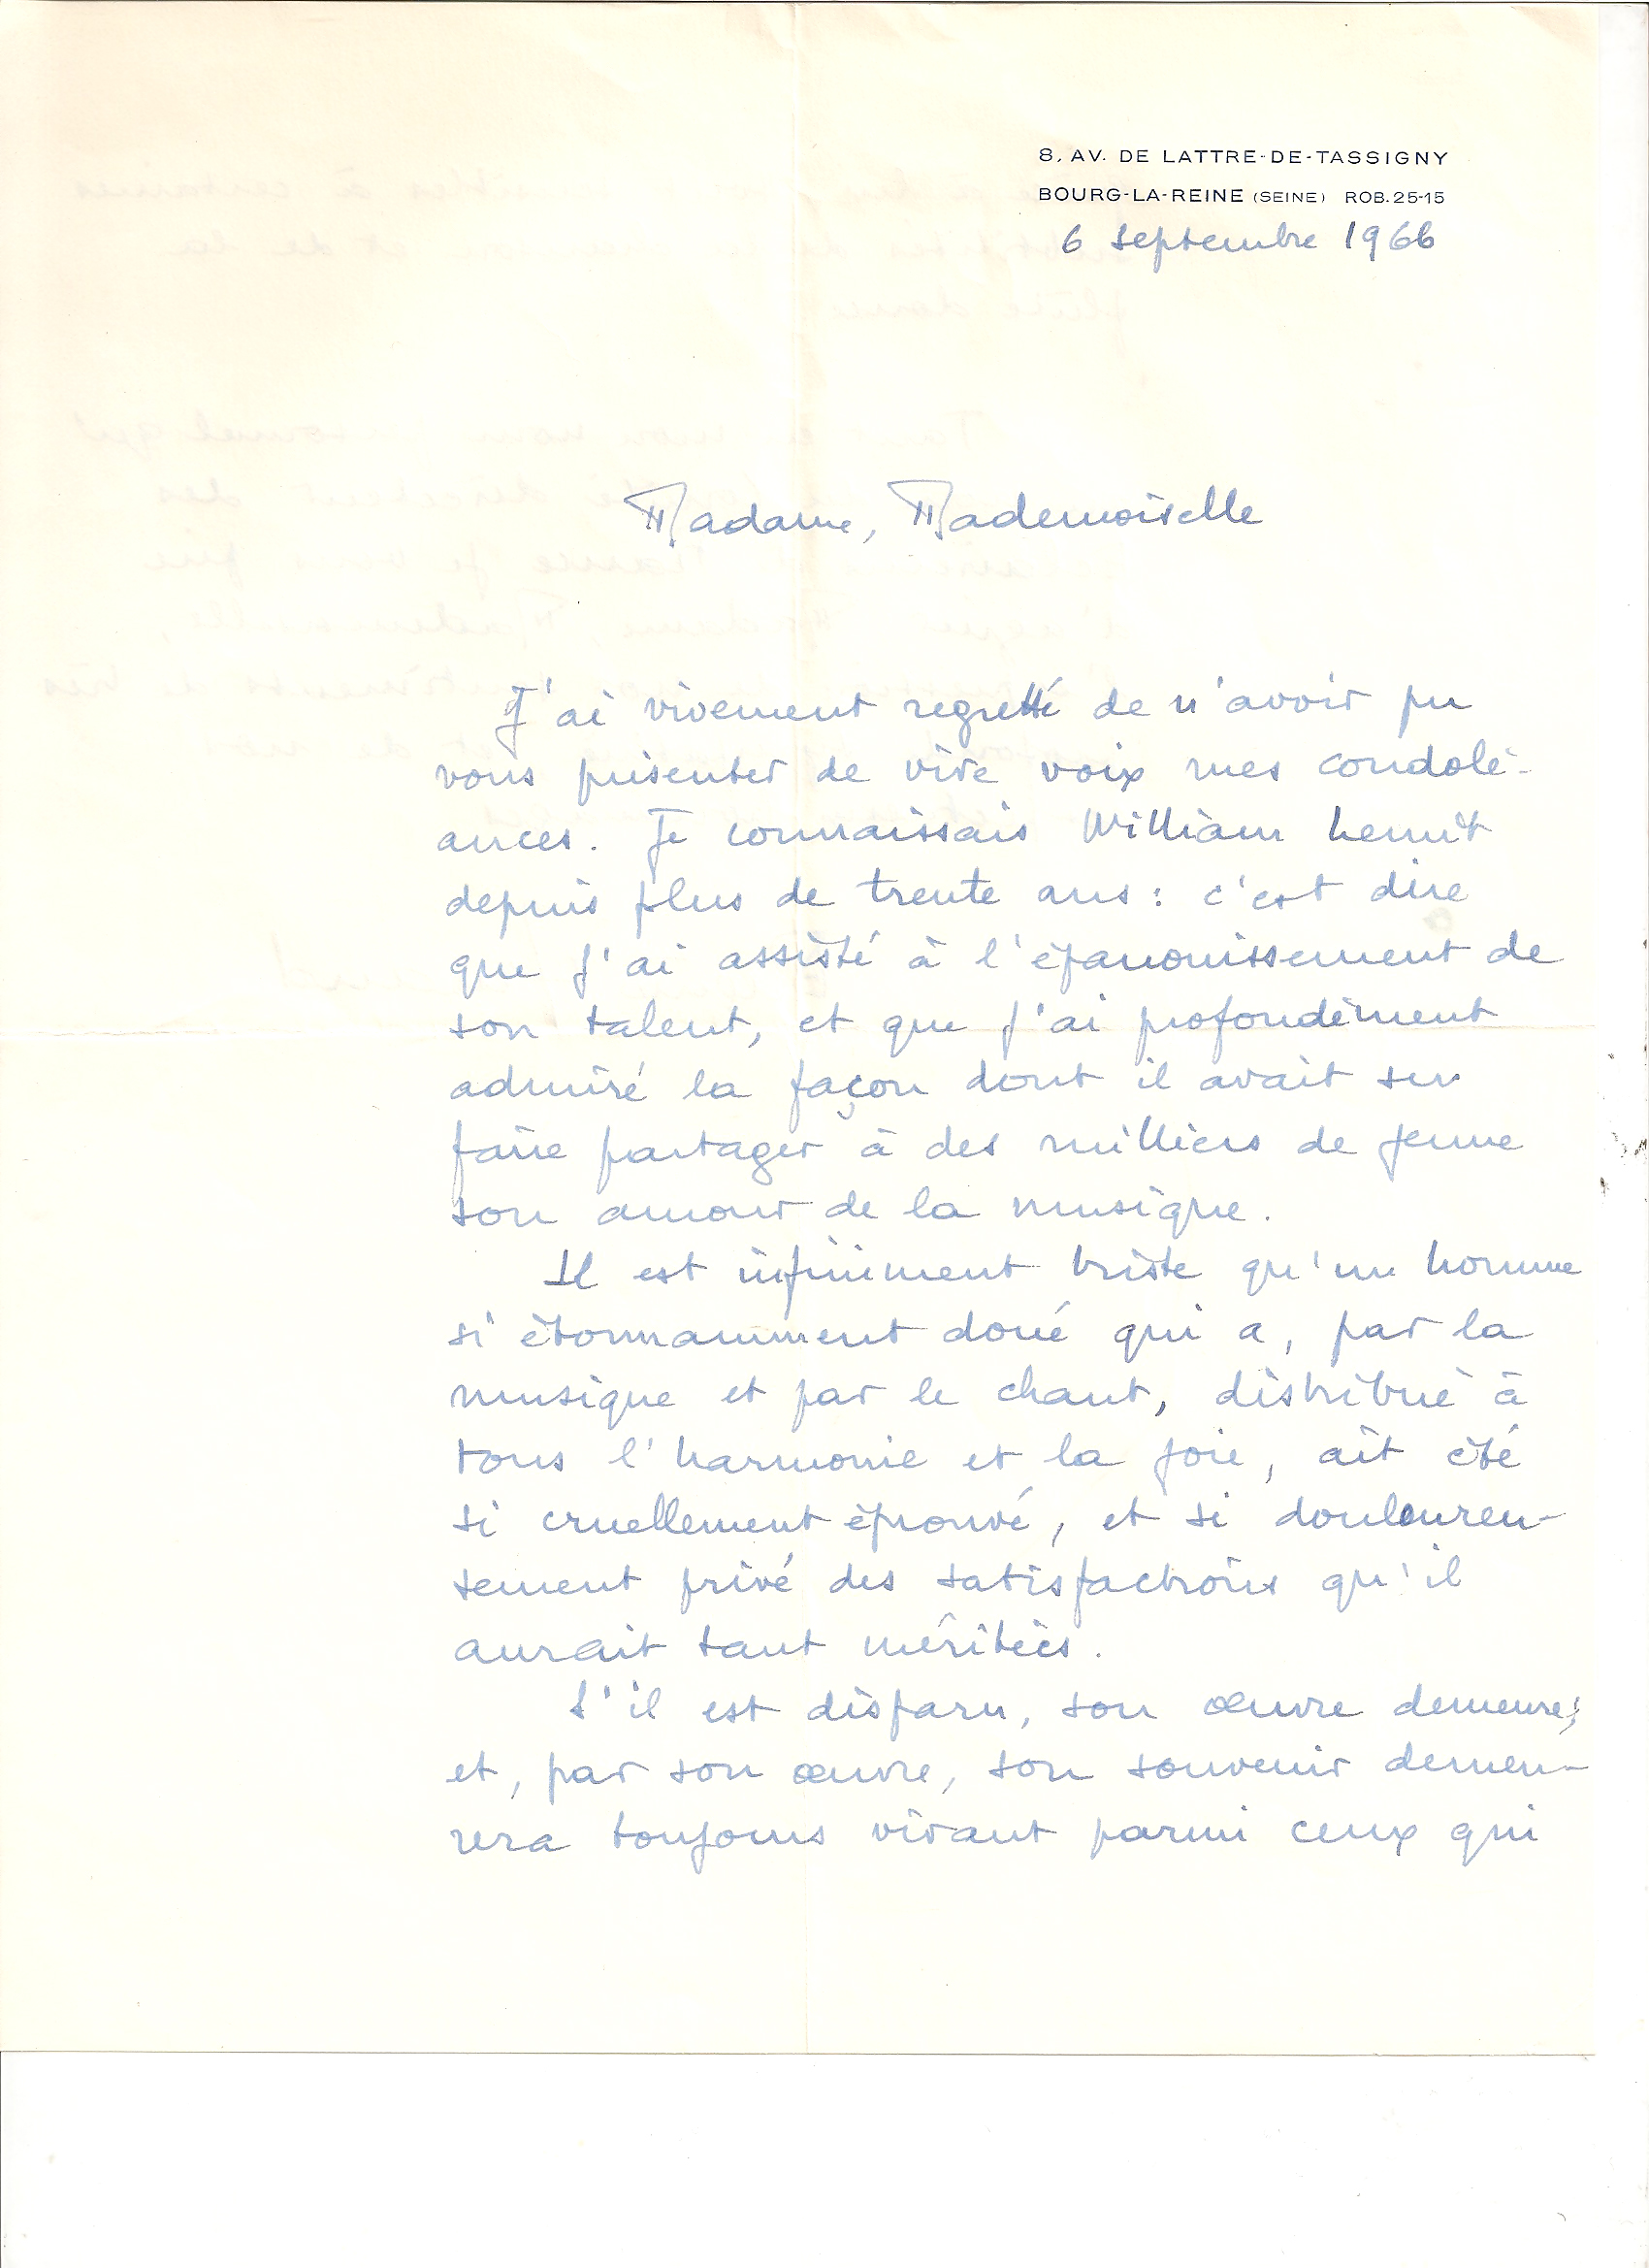 8, AV. DE LATTRE-DE-TASSIGNY
BOURG-LA-REINE (SEINE) ROB. 25-15
6 septembre 1966
Madame, Mademoiselle
J'ai vivement regretté de n'avoir pu
vous présenter de vive voix mes condolé-
ances. Je connaissais William Lemit
depuis plus de trente ans : c'est dire
que j'ai assisté à l'épanouissement de
son talent, et que j'ai profondément
admiré la façon dont il avait su
faire partager à des milliers de jeune
son amour de la musique.
Il est infiniment triste qu'un homme
si étonnamment doué qui a, par la
musique et par le chant, distribué à
tous l'harmonie et la joie, ait été
si cruellement éprouvé, et si douloureu-
sement privé des satisfactions qu'il
aurait tant méritées.
S'il est disparu, son œuvre demeure;
et, par son œuvre, son souvenir demeu-
rera toujours vivant parmi ceux qui